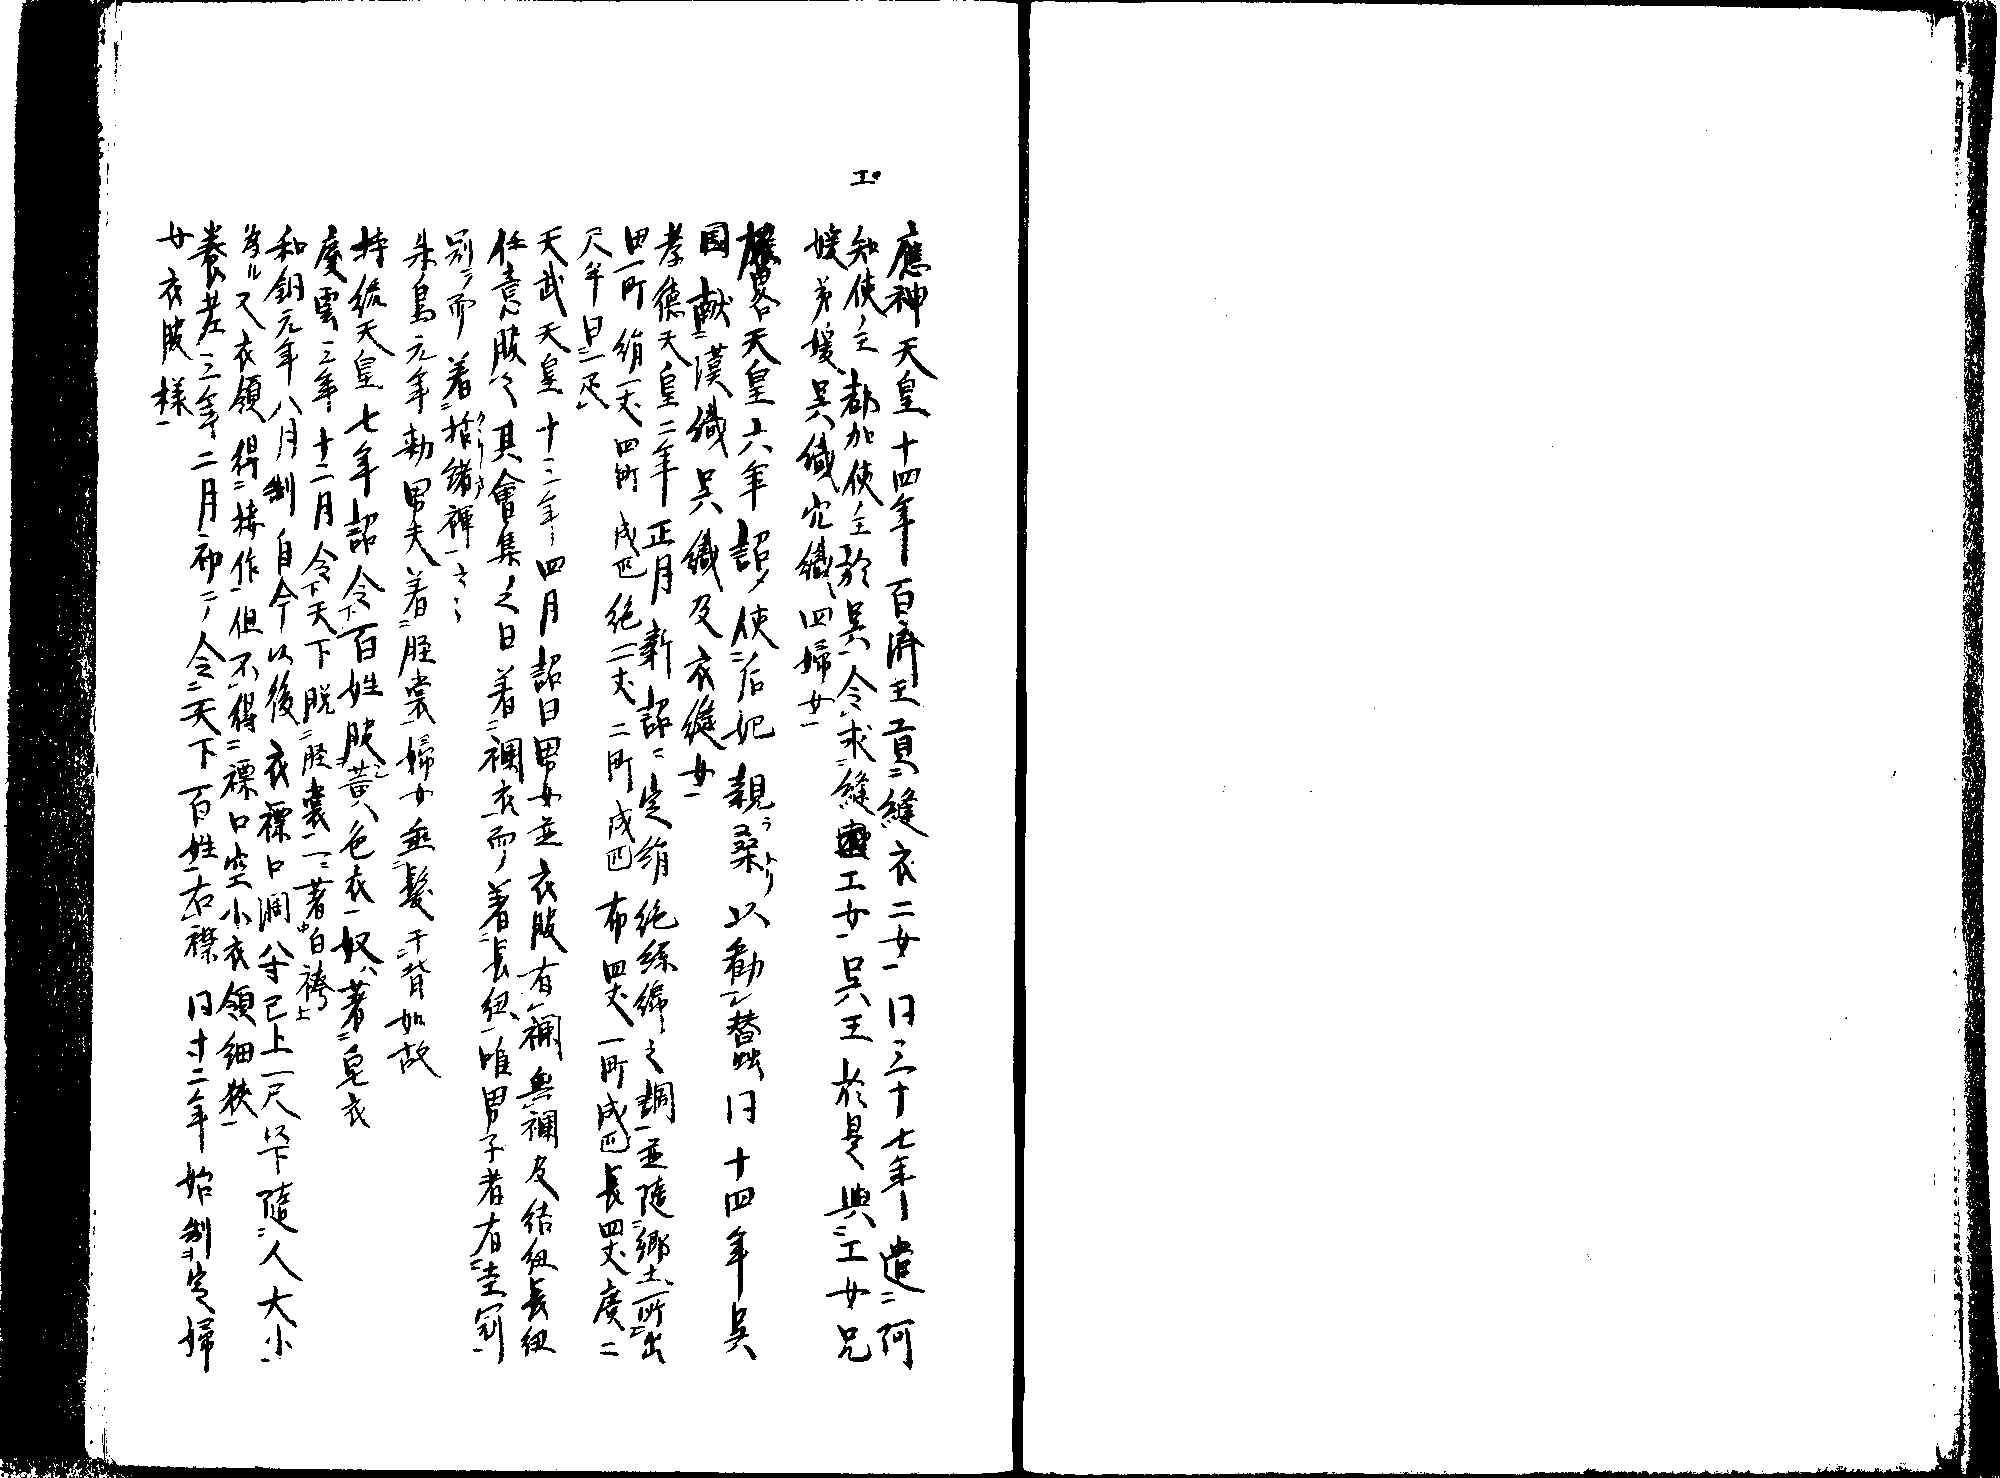 工
應神天皇十四年百濟王貢縫衣二女一曰三十七年遣二阿
知使主都加使主於呉令求縫工女一呉王於是與二工女兄
媛弟媛呉織穴織四婦女一
天皇六年詔使二后妃親桑以勸蚕曰十四年呉
国献二漢織呉織及衣縫女一
孝徳天皇二年正月新詔二定絹絁絲綿之調一並隨二郷土所一出
田一町絹一丈四町成匹絁二丈二町成匹布四丈一町成匹長四丈廣二
尺半
天武天皇十三年四月詔曰男女並衣服有襴無襴及結紐長紐
任意服之其會集之日着二襴衣而着二長紐一唯男子者有二圭冠一
冠而着二括緒褌一
朱鳥元年勅男夫着二脛裳一婦女垂髪于背如故
持統天皇七年詔令下百姓服黄色衣一奴ハ著二皂衣
慶雲三年十二月令下天下脱二脛裳一著中白袴上
和銅元年八月制自今以後衣褾口濶八寸已上一尺以下隨二人大小一
為ル又衣領得二接作一但不レ得二褾口窄小衣領細狹一
養老三年二月初令二天下百姓一右襟曰十二年始制定婦
女衣服様一